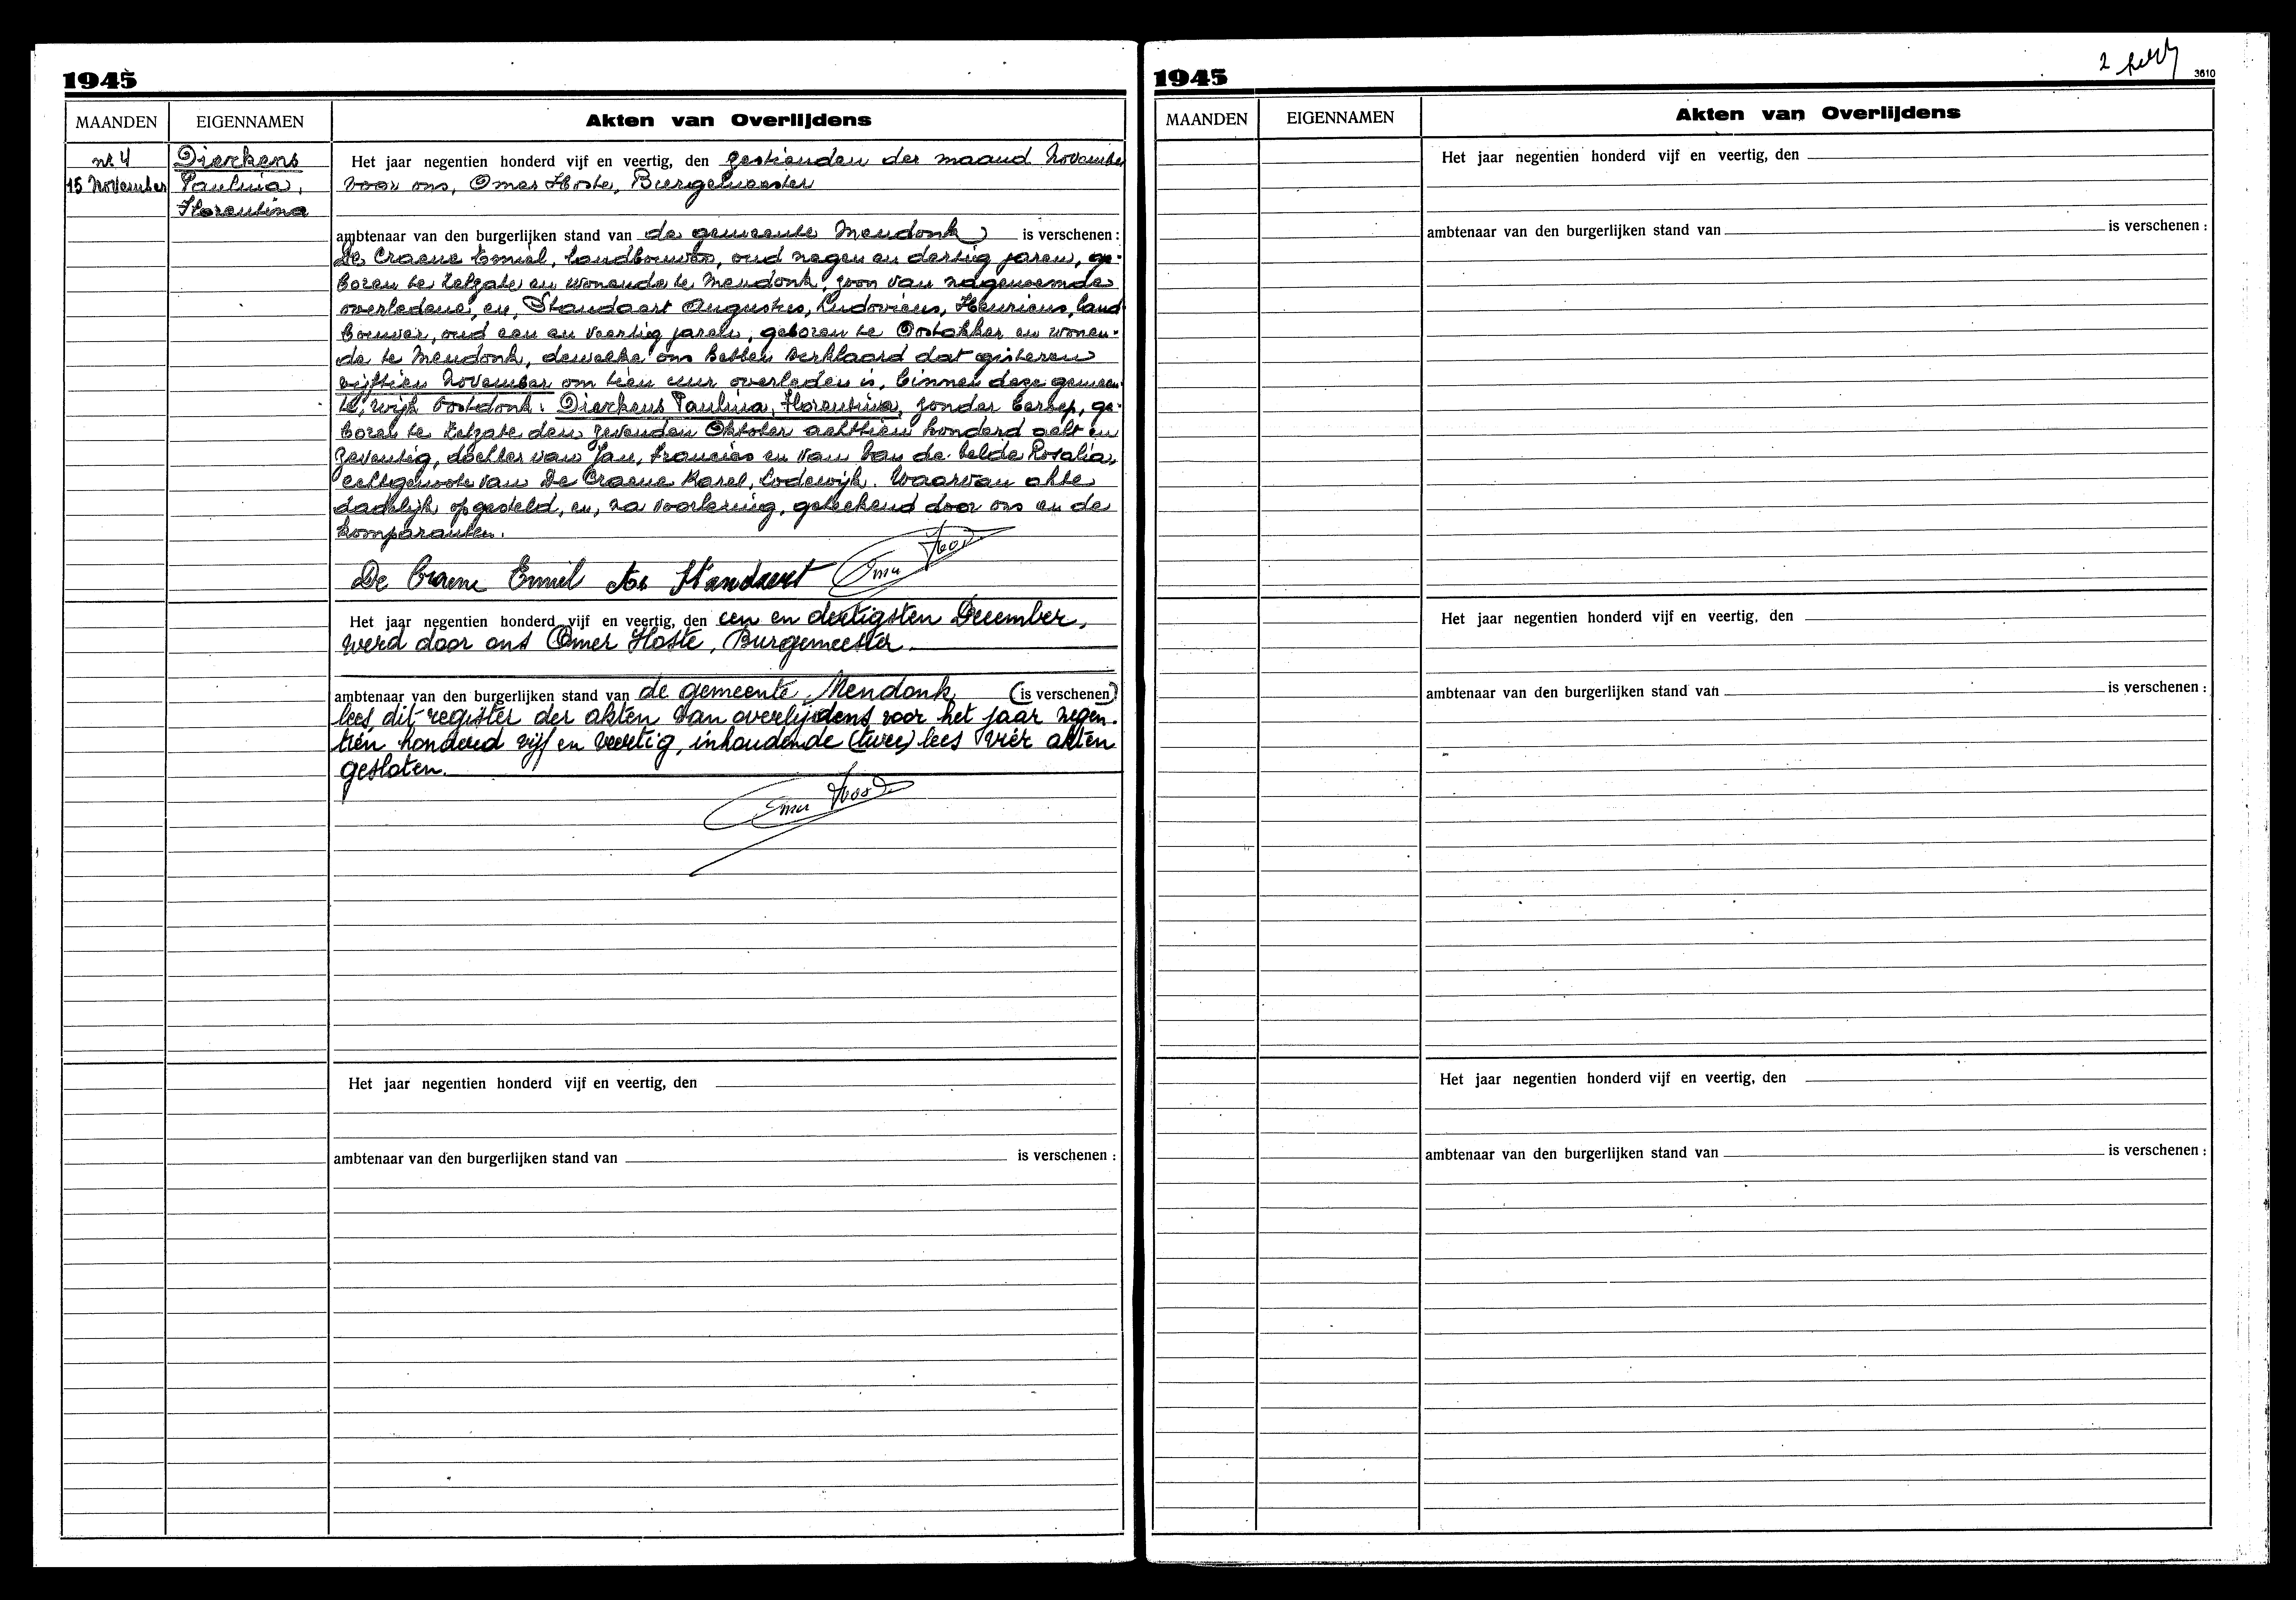 1945
MAANDEN EIGENNAMEN Akten van Overlijdens
nr 4 Dierkens
15 November Paulina,
Florentina
Het jaar negentien honderd vijf en veertig, den zestienden der maand November
voor ons, Omer Hoste, Burgemeester
ambtenaar van den burgerlijken stand van de gemeente Mendonk is verschenen :
De Craene Emiel, landbouwer, oud negen en dertig jaren, ge-
boren te Zelzate en wonende te Mendonk, zoon van nagenoemde
overledene, en, Standaert Augustus, Ludovicus, Henricus, land
bouwer, oud een en veertig jaren, geboren te Oostakker en wonen-
de te Mendonk, dewelke ons hebben verklaard dat gisteren
vijftien November om tien uur overleden is, binnen deze gemeen-
te, wijk Oostdonk : Dierkens Paulina, Florentina, zonder beroep, ge-
boren te Zelzate den zevenden Oktober achttien honderd acht en
zeventig, dochter van Jan, Francies en van Van de Velde Rosalia,
echtgenoote van De Craene Karel, Lodewijk. Waarvan akte
dadelijk opgesteld, en, na voorlezing, geteekend door ons en de
komparanten.
De Craene Emiel Standaert Omer Hoste
Het jaar negentien honderd vijf en veertig, den een en dertigsten December,
werd door ons Omer Hoste, Burgemeester.
ambtenaar van den burgerlijken stand van de gemeente Mendonk (is verschenen)
lees dit register der akten van overlijdens voor het jaar negen-
tien honderd vijf en veertig, inhoudende (twee) lees vier akten
gesloten.
Omer Hoste
Het jaar negentien honderd vijf en veertig, den
ambtenaar van den burgerlijken stand van is verschenen :
2
3610
1945
MAANDEN EIGENNAMEN Akten van Overlijdens
Het jaar negentien honderd vijf en veertig, den
ambtenaar van den burgerlijken stand van is verschenen :
Het jaar negentien honderd vijf en veertig, den
ambtenaar van den burgerlijken stand van is verschenen :
Het jaar negentien honderd vijf en veertig, den
ambtenaar van den burgerlijken stand van is verschenen :